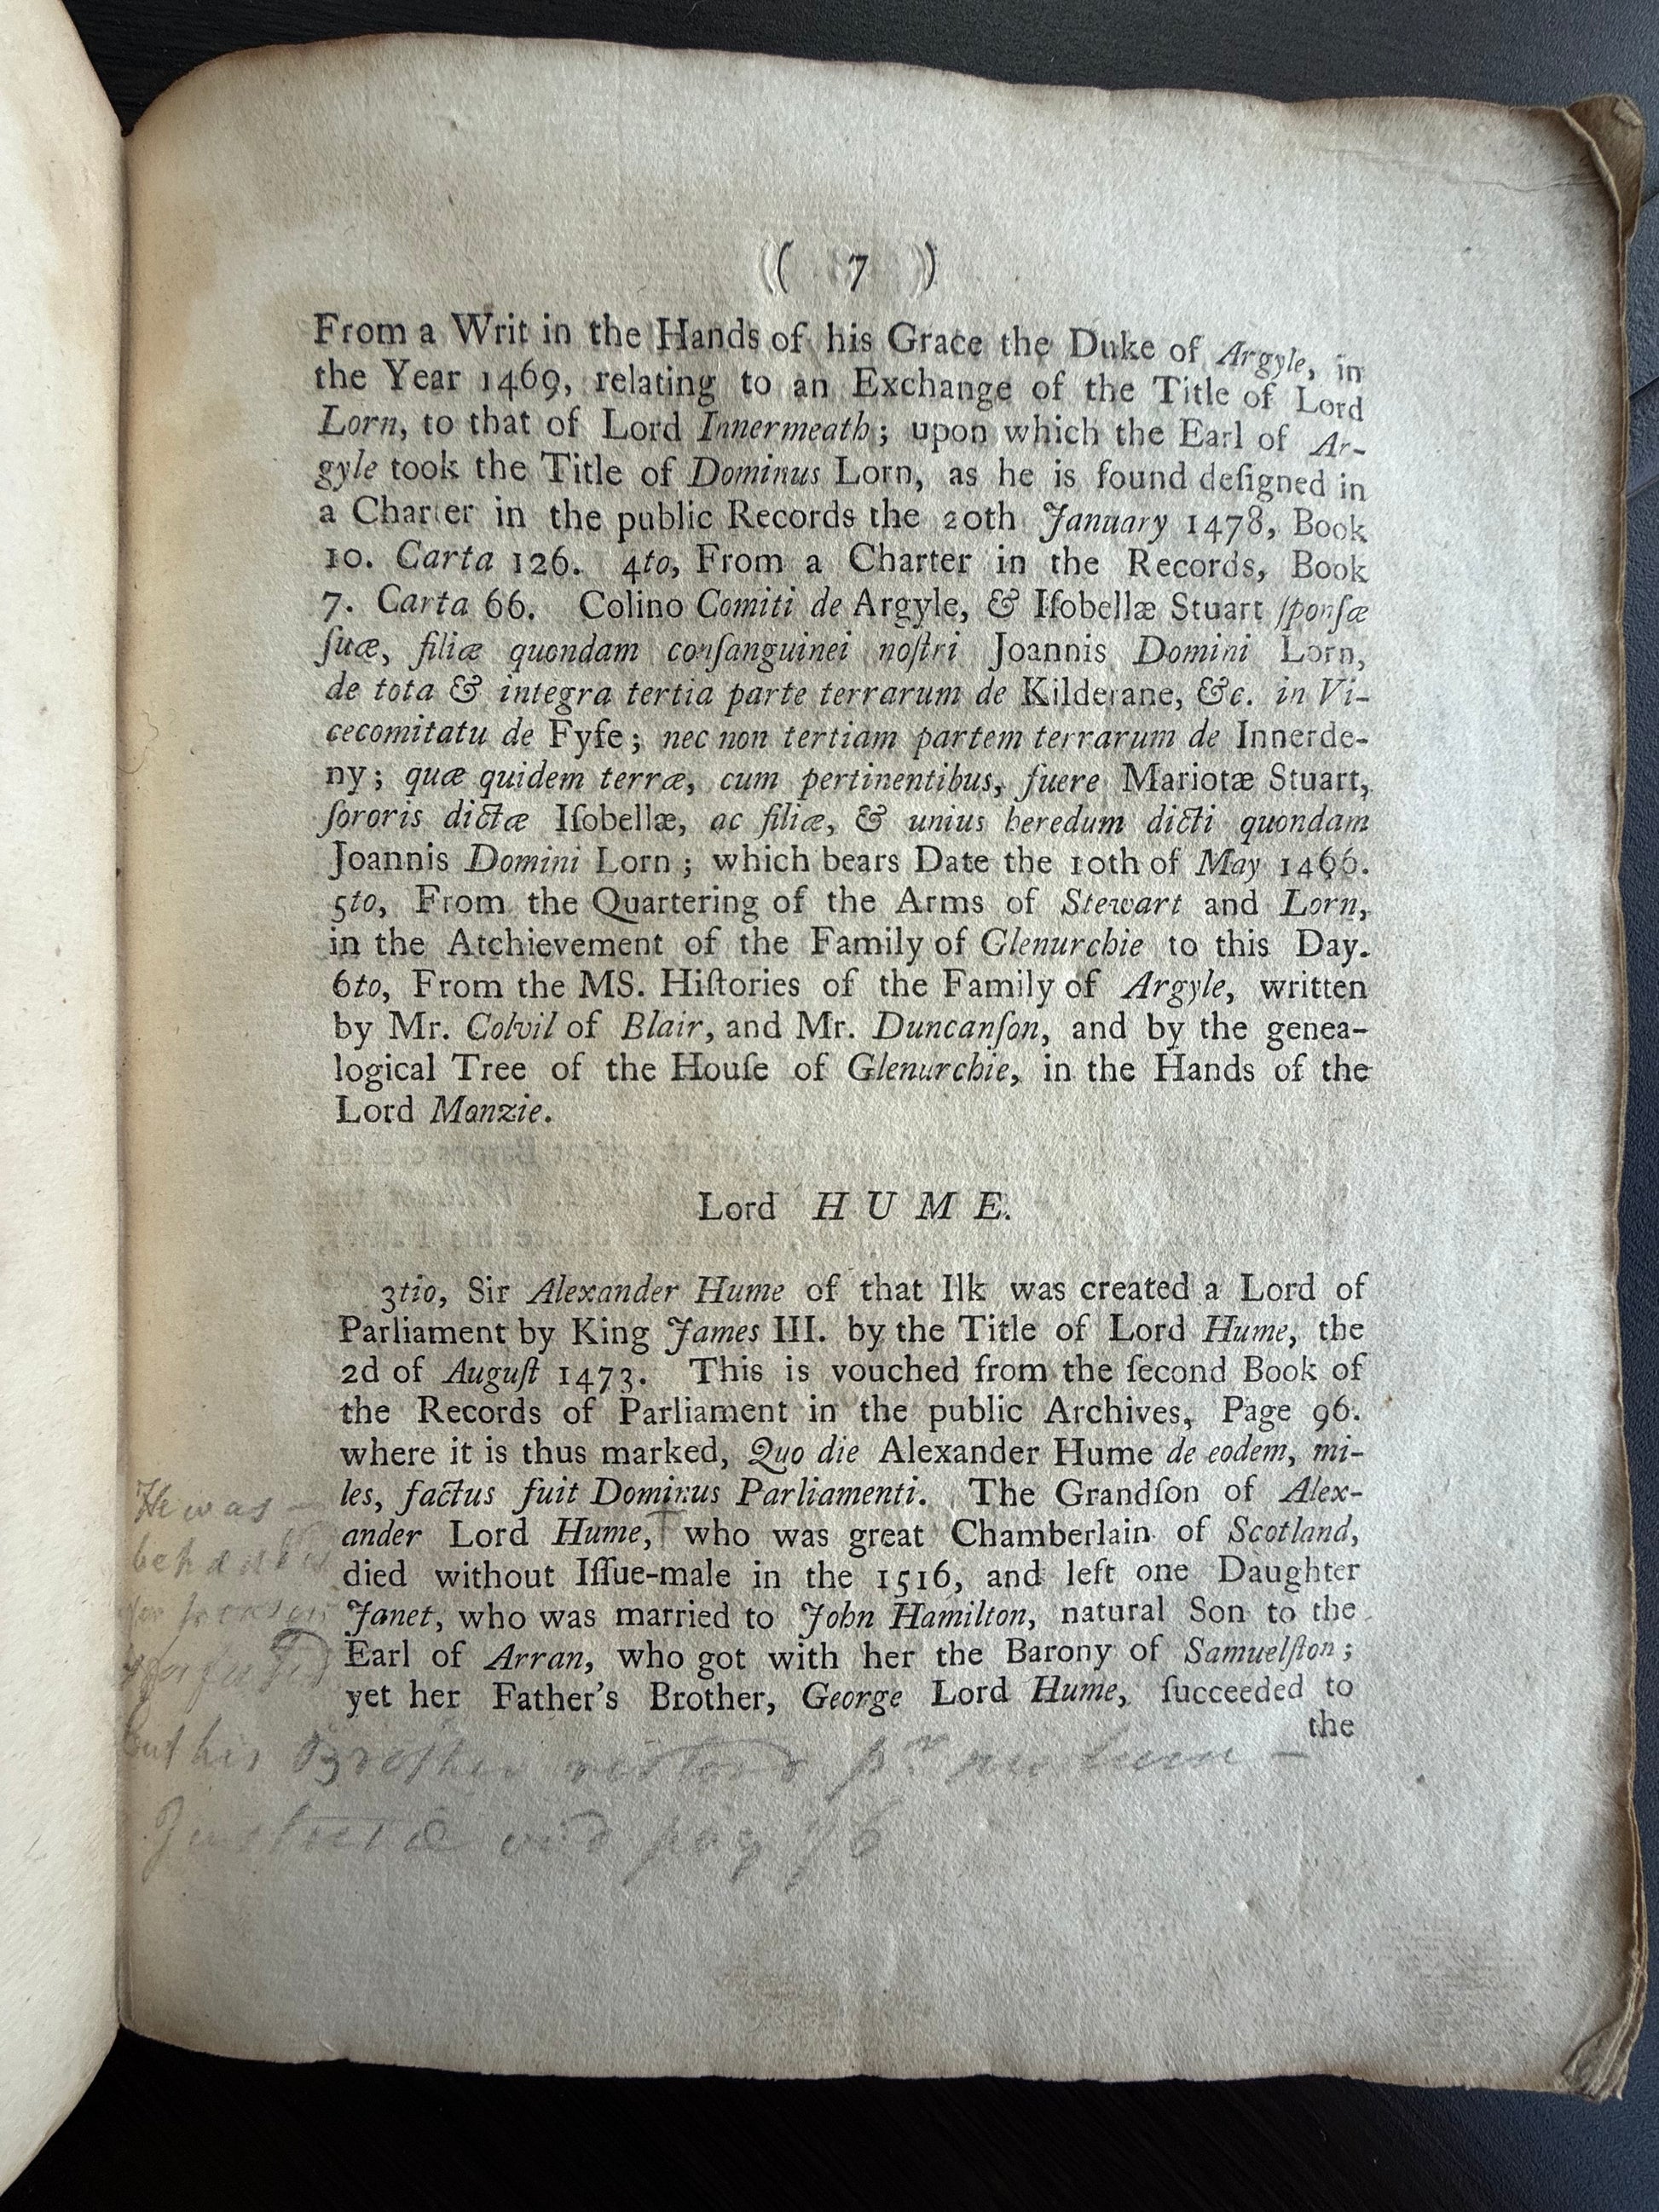 ( 7 )
From a Writ in the Hands of his Grace the Duke of Argyle, in
the Year 1469, relating to an Exchange of the Title of Lord
Lorn, to that of Lord Innermeath; upon which the Earl of Ar-
gyle took the Title of Dominus Lorn, as he is found deſigned in
a Charter in the public Records the 20th January 1478, Book
10. Carta 126. 4to, From a Charter in the Records, Book
7. Carta 66. Colino Comiti de Argyle, & Iſobellæ Stuart ſponſæ
ſuæ, filiæ quondam conſanguinei noſtri Joannis Domini Lorn,
de tota & integra tertia parte terrarum de Kilderane, &c. in Vi-
cecomitatu de Fyfe; nec non tertiam partem terrarum de Innerde-
ny; quæ quidem terræ, cum pertinentibus, fuere Mariotæ Stuart,
ſororis dictæ Iſobellæ, ac filiæ, & unius heredum dicti quondam
Joannis Domini Lorn; which bears Date the 10th of May 1466.
5to, From the Quartering of the Arms of Stewart and Lorn,
in the Atchievement of the Family of Glenurchie to this Day.
6to, From the MS. Hiſtories of the Family of Argyle, written
by Mr. Colvil of Blair, and Mr. Duncanſon, and by the genea-
logical Tree of the Houſe of Glenurchie, in the Hands of the
Lord Monzie.
Lord HUME.
3tio, Sir Alexander Hume of that Ilk was created a Lord of
Parliament by King James III. by the Title of Lord Hume, the
2d of Auguſt 1473. This is vouched from the ſecond Book of
the Records of Parliament in the public Archives, Page 96.
where it is thus marked, Quo die Alexander Hume de eodem, mi-
les, factus fuit Dominus Parliamenti. The Grandſon of Alex-
ander Lord Hume, who was great Chamberlain of Scotland,
died without Iſſue-male in the 1516, and left one Daughter
Janet, who was married to John Hamilton, natural Son to the
Earl of Arran, who got with her the Barony of Samuelſton;
yet her Father's Brother, George Lord Hume, ſucceeded to
the
He was
but his Brother restord pr
vid pag 76